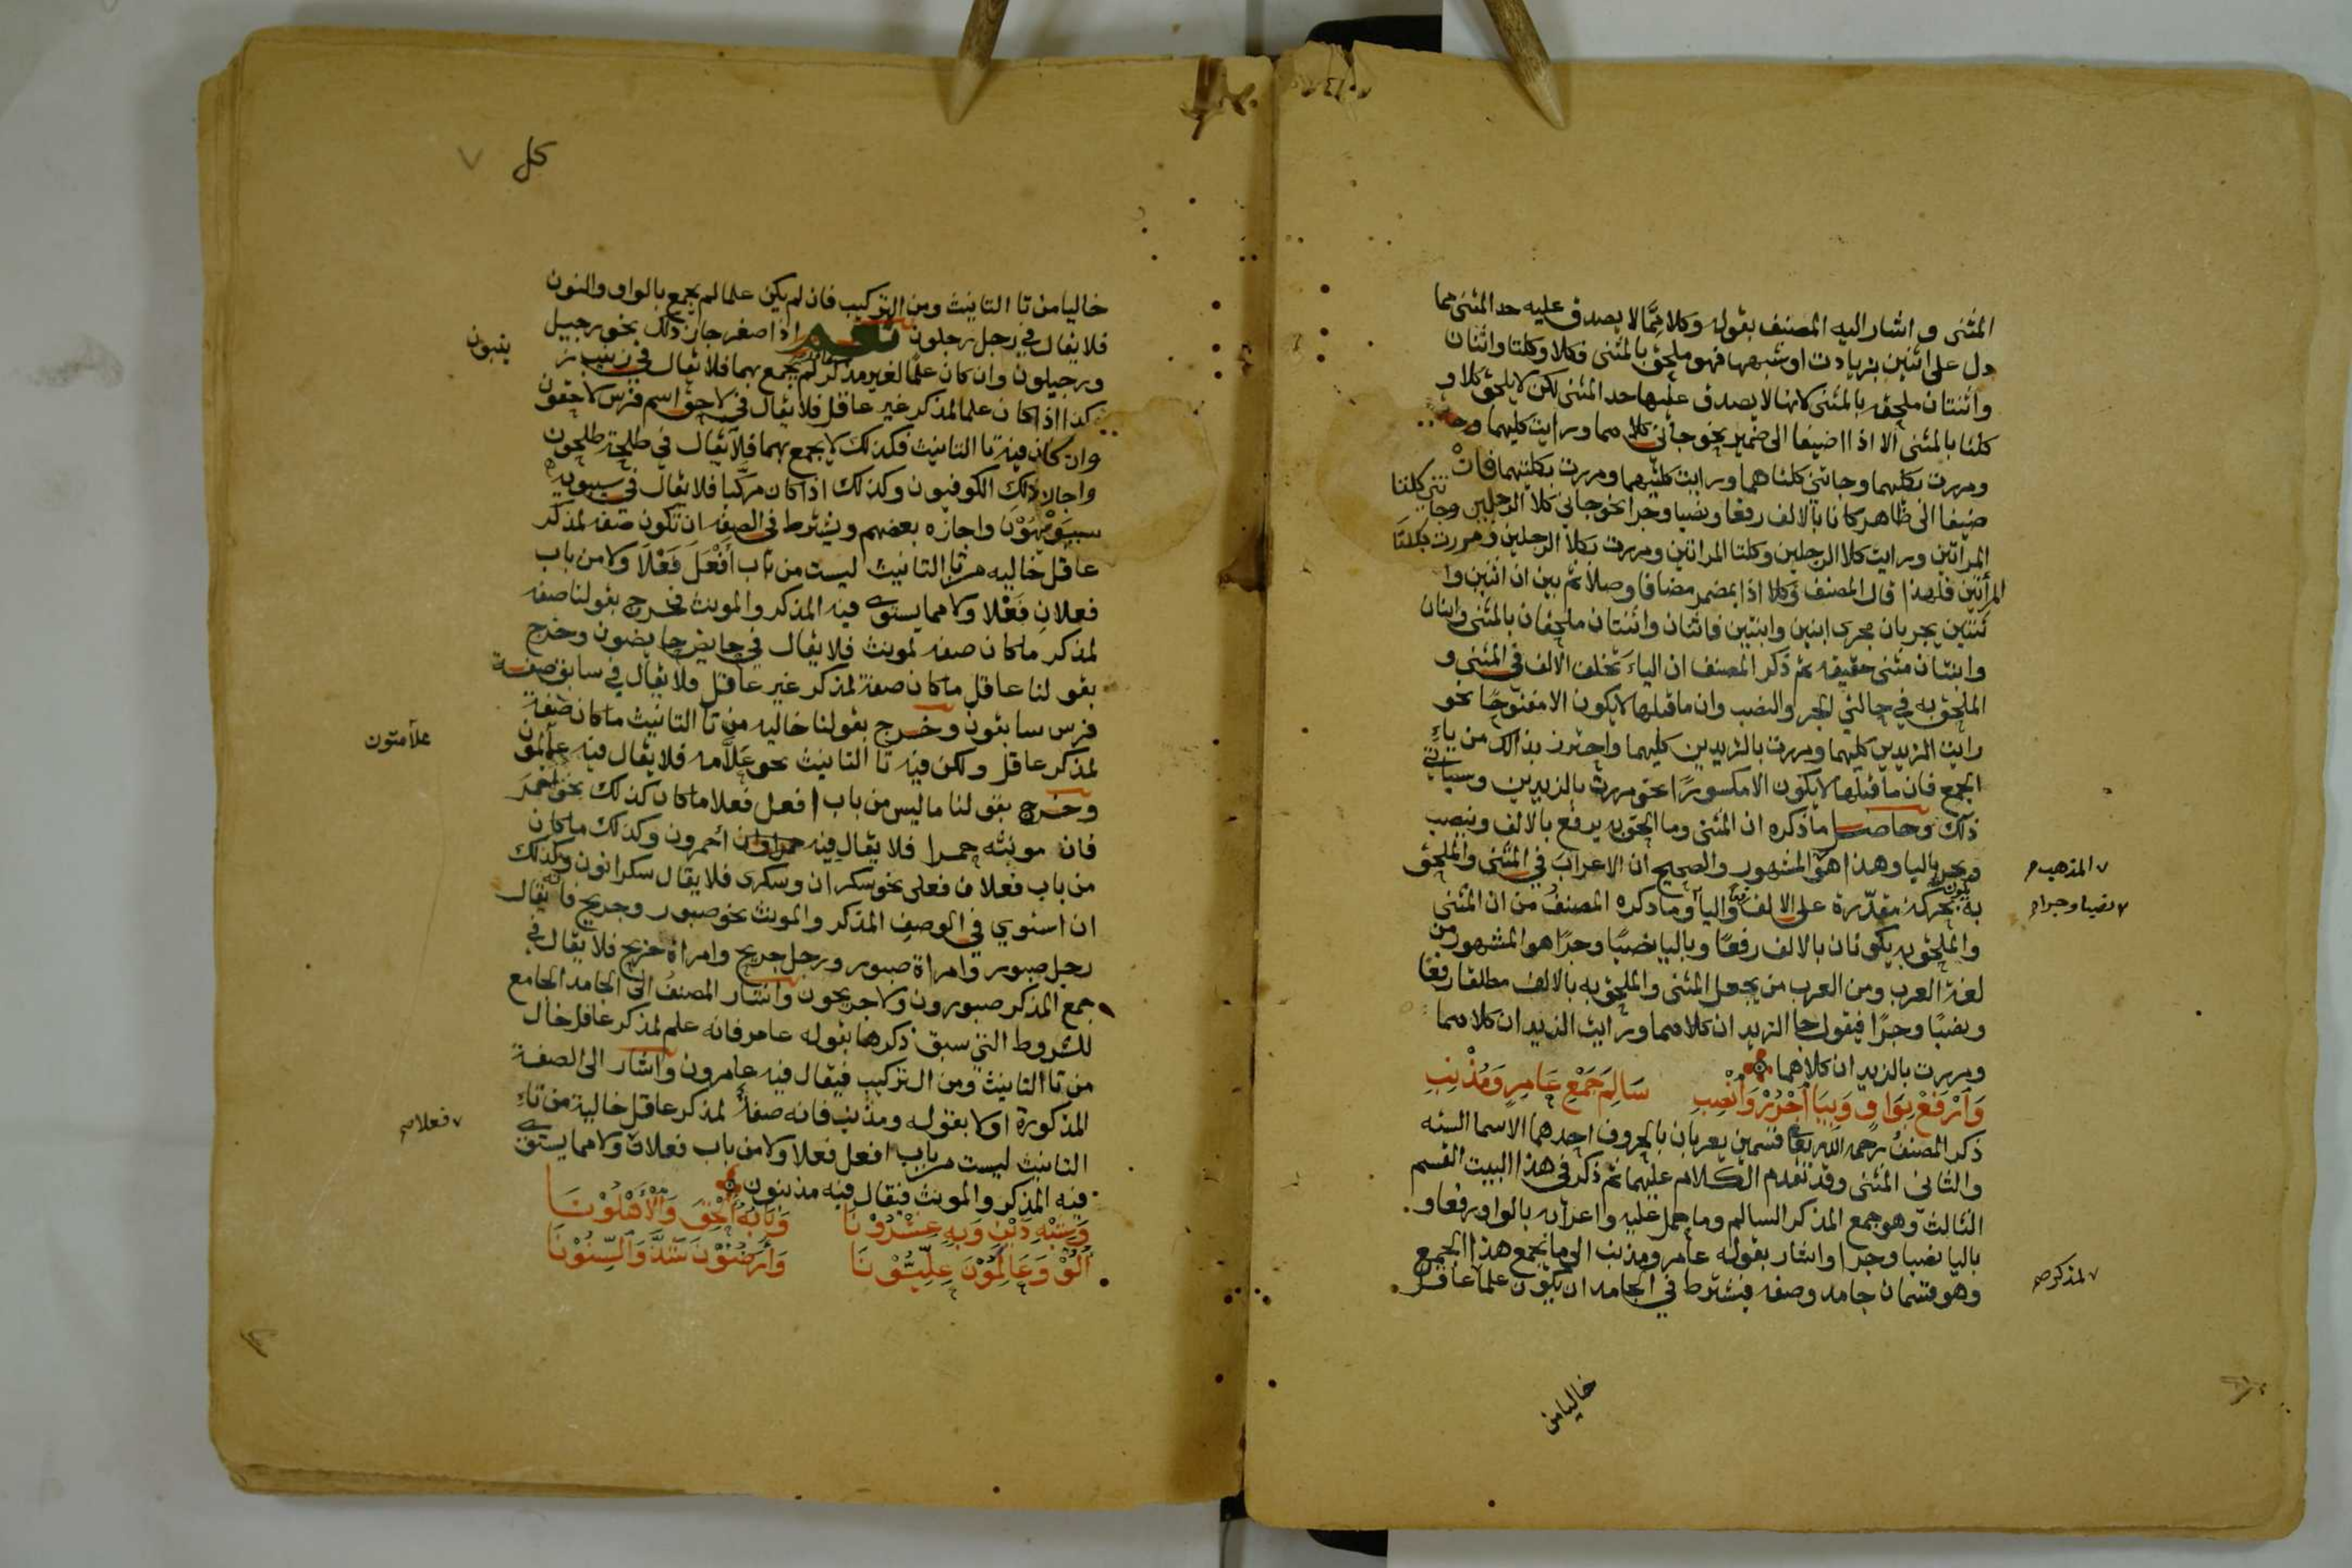 المثنى و اشار اليه المصنف بقوله وكلا مما لا يصدق عليه حد المثنى مما
دل على اثنين بزيادت او شبهها فهو ملحق بالمثنى فكلا وكلتا واثنان
واثنتان ملحقه بالمثنى لانها لا يصدق عليها حد المثنى لكن لا يلحق كلا و
كلتا بالمثنى الا اذا اضيفا الى ضمير نحو جائني كلاهما ورايت كليهما
ومررت بكليهما وجاتني كلتاهما ورايت كلتيهما ومررت بكلتيهما فان
ضيفا الى ظاهر كانا بالالف رفعا ونصبا وجرا نحو جاني كلا الرجلين وجا
تني كلتا
المرأتين ورايت كلا الرجلين وكلتا المراتين ومررت بكلا الرجلين ومررت بكلتا
المرأتين فلهذا قال المصنف وكلا اذا بمضمر مضافا وصلا ثم بين ان اثنين وا
ثنتين يجريان مجرى ابنين وابنتين فاثنان واثنتان ملحقان بالمثنى وابنان
وابنتان مثنى حقيقه ثم ذكر المصنف ان الياء تخلف الالف في المثنى و
الملحق به في حالتي الجر والنصب وان ما قبلها لا يكون الا مفتوحا نحو
رايت الزيدين كليهما ومررت بالزيدين كليهما واحترز بذالك من ياء
الجمع فان ما قبلها لا يكون الا مكسورا نحو مررت بالزيدين وسياتي
ذلك وحاصل ما ذكره ان المثنى وما الحق به يرفع بالالف وينصب
ويجر باليا وهذا هو المشهور والصحيح ان الاعراب في المثنى والملحق
المذهب
به بحركة مقدرة على الالف واليا وما ذكره المصنف من ان المثنى
نصبا وجرا
والملحق به يكونان بالالف رفعا وباليا نصبا وجرا هو المشهور من
لغة العرب ومن العرب من يجعل المثنى والملحق به بالالف مطلقا رفعا
ونصبا وجرا فيقول جا الزيدان كلاهما ورايت الزيدان كلاهما
ومررت بالزيدان كلاهما
وَارْفَعْ بِوَاوٍ وَبِيَا اجْرُرْ وَانْصِبِ سَالِمَ جَمْعِ عَامِرٍ وَمُذْنِبِ
ذكر المصنف رحمه الله تعا قسمين يعربان بالحروف احدهما الاسما السته
والثانى المثنى وقد تقدم الكلام عليهما ثم ذكر في هذا البيت القسم
الثالث وهو جمع المذكر السالم وما حمل عليه واعرابه بالواو رفعا و
باليا نصبا وجرا واشار بقوله عامر ومذنب الى ما يجمع هذا الجمع
وهو قسمان جامد وصفه فيشترط في الجامد ان يكون علما عاقل
لمذكر
خاليا من
كل
٧
خاليا من تا التانيث ومن التركيب فان لم يكن علما لم يجمع بالواو والنون
فلا يقال في رجل رجلون نعم اذا صغر جاز ذلك نحو رجيل
ورجيلون وان كان علما لغير مذكر لم يجمع بهما فلا يقال في زينب ز
ينبون
كذا اذا كان علما لمذكر غير عاقل فلا يقال في لاحق اسم فرس لاحقون
وان كان فيه تا التانيث فكذلك لا يجمع بهما فلا يقال في طلحة طلحون
واجاز ذلك الكوفيون وكذلك اذا كان مركبا فلا يقال في سيبويه
سيبويهون واجازه بعضهم ويشترط في الصفه ان تكون صفه لمذكر
عاقل خاليه من تا التانيث ليست من باب افعل فعلا ولا من باب
فعلان فعلا ولا مما يستوي فيه المذكر والمونث فخرج بقولنا صفه
لمذكر ما كان صفه لمونث فلا يقال في حايض حايضون وخرج
بقولنا عاقل ما كان صفة لمذكر غير عاقل فلا يقال في سابق صفة
فرس سابقون وخرج بقولنا خاليه من تا التانيث ما كان صفة
لمذكر عاقل ولكن فيه تا التانيث نحو علامه فلا يقال فيه
علامتون
وخرج بقولنا ما ليس من باب افعل فعلا ما كان كذلك نحو احمر
فان مونثه حمرا فلا يقال فيه احمرون وكذلك ما كان
من باب فعلان فعلى نحو سكران وسكرى فلا يقال سكرانون وكذلك
ان استوي في الوصف المذكر والمونث نحو صبور وجريح فانه يقال
رجل صبور وامراة صبور ورجل جريح وامراة جريح فلا يقال في
جمع المذكر صبورون ولا جريحون واشار المصنف الى الجامد الجامع
للشروط التي سبق ذكرها بقوله عامر فانه علم لمذكر عاقل خال
من تا التانيث ومن التركيب فيقال فيه عامرون واشار الى الصفة
المذكورة اولا بقوله ومذنب فانه صفة لمذكر عاقل خالية من تاء
التانيث ليست من باب افعل فعلا ولا من باب فعلان ولا مما يستوي
فعلا
فيه المذكر والمونث فيقال فيه مذنبون
وَشِبْهِ ذَيْنِ وَبِهِ عِشْرُوْنَا وَبَابُهُ أُلْحِقَ وَالْأَهْلُوْنَا
أُلُوْ وَعَالَمُوْنَ عِلِّيُّوْنَا وَأَرَضُوْنَ شَذَّ وَالسِّنُوْنَا